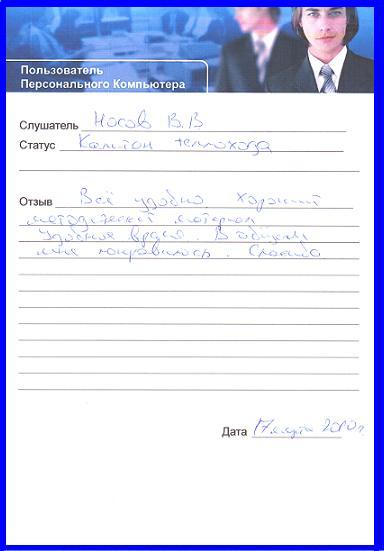 Пользователь
Персонального Компьютера
Слушатель Носов В.В
Статус Капитан теплохода
Отзыв Всё удобно. Хороший
методический материал
Удобное время. В общем
мне понравилось. Спасибо
Дата 17 марта 2010 г.